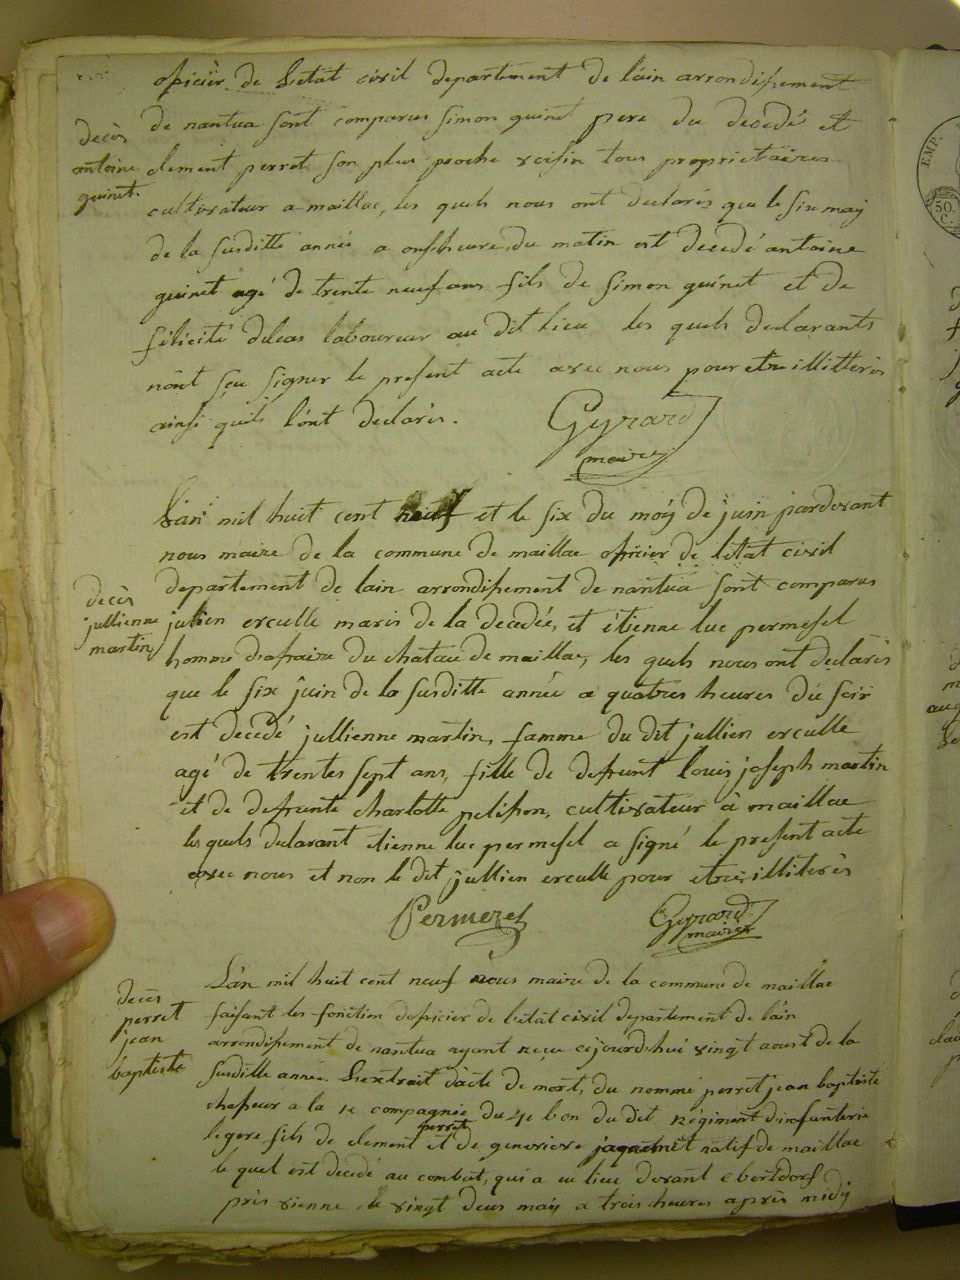 oficier de letat civil departement de lain arrondissement
decès
antoine
guinet.
de nantua sont comparus simon guinet pere du decedé et
clement perret son plus proche voisin tous proprietaires
cultivateur a maillac, les quels nous ont declarés que le six may
de la susditte année a onse heure du matin est decedé antoine
guinet agé de trente neuf ans fils de simon guinet et de
felicité deleas laboureur au dit lieu les quels declarants
nont seu signer le present acte avec nous pour etre illitterés
ainsi quils lont declarés.
Gyrard
maire
Lan mil huit cent neuf et le six du moy de juin pardevant
nous maire de la commune de maillac oficier de letat civil
decès
jullienne
martin
departement de lain arrondissement de nantua sont comparus
julien erculle maris de la decedée, et étienne luc permesel
homme dafaire du chateau de maillac, les quels nous ont declarés
que le six juin de la susditte année a quatres heures du soir
est decedé jullienne martin, famme du dit jullien erculle
agé de trentes sept ans, fille de defrunt louis joseph martin
et de defrunte charlotte pelisson, cultivateur à maillac
les quels declarant etienne luc permesel a signé le present acte
avec nous et non le dit jullien erculle pour etre illiterés
Permezel
Gyrard
maire
decès
perret
jean
baptiste
Lan mil huit cent neuf nous maire de la commune de maillac
faisant les fonction doficier de letat civil departement de lain
arrondissement de nantua ayant reçu cejourdhui vingt aoust de la
susditte année. Lextrait dacte de mort, du nommé perret jean baptiste
chasseur a la 1e compagnie du 4e bon du dit regiment dinfanterie
legere fils de clement perret et de genevieve jaquenet natif de maillac
le quel est decedé au combat, qui a eu lieu devant ebersdorf
près vienne, le vingt deux may a trois heures après midy
EMP.
50.
C.